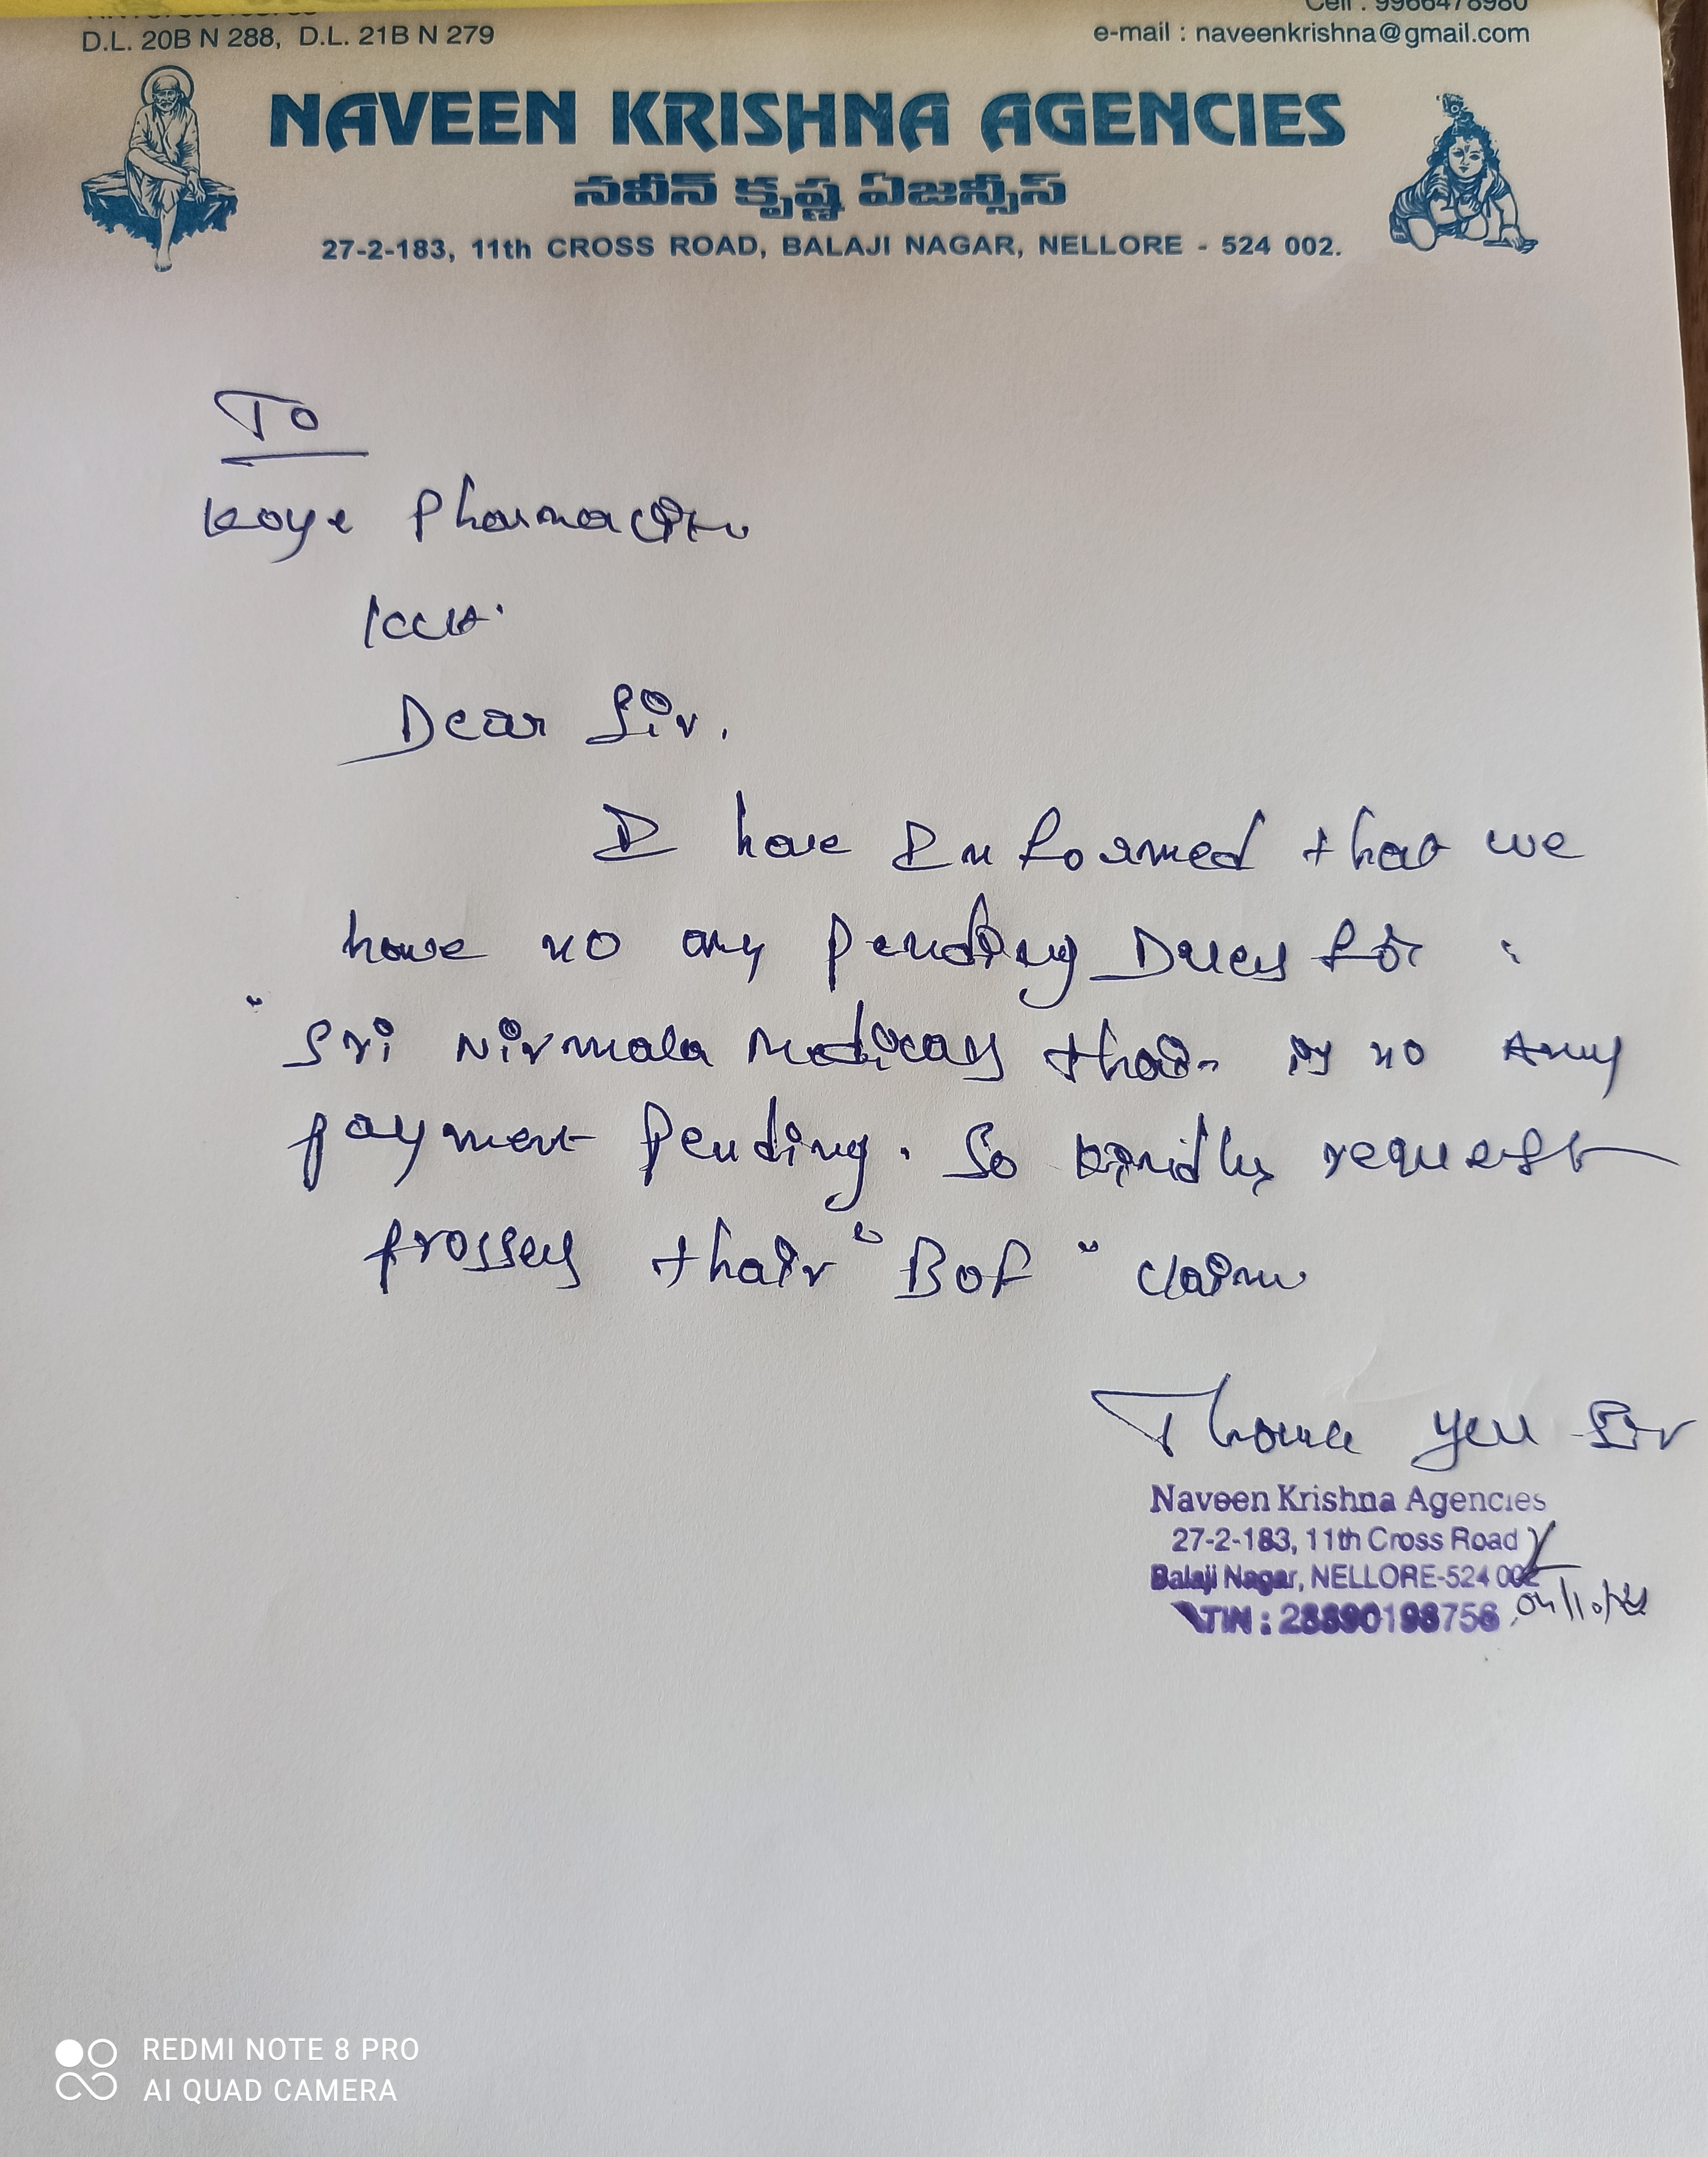 D.L. 20B N 288, D.L. 21B N 279
Cell : 9966478980
e-mail : naveenkrishna@gmail.com
NAVEEN KRISHNA AGENCIES
నవీన్ కృష్ణ ఏజన్సీస్
27-2-183, 11th CROSS ROAD, BALAJI NAGAR, NELLORE - 524 002.
To
Koye Pharmaciti
Dear Sir,
I have Informed that we
have no any Pending Dues for "
" Sri Nirmala Medicals thair is no Any
payment Pending. So kindly request
prosses thair "BOF" claim
Thank you Sir
Naveen Krishna Agencies
27-2-183, 11th Cross Road
Balaji Nagar, NELLORE-524 002
TIN : 28890198756
REDMI NOTE 8 PRO
AI QUAD CAMERA